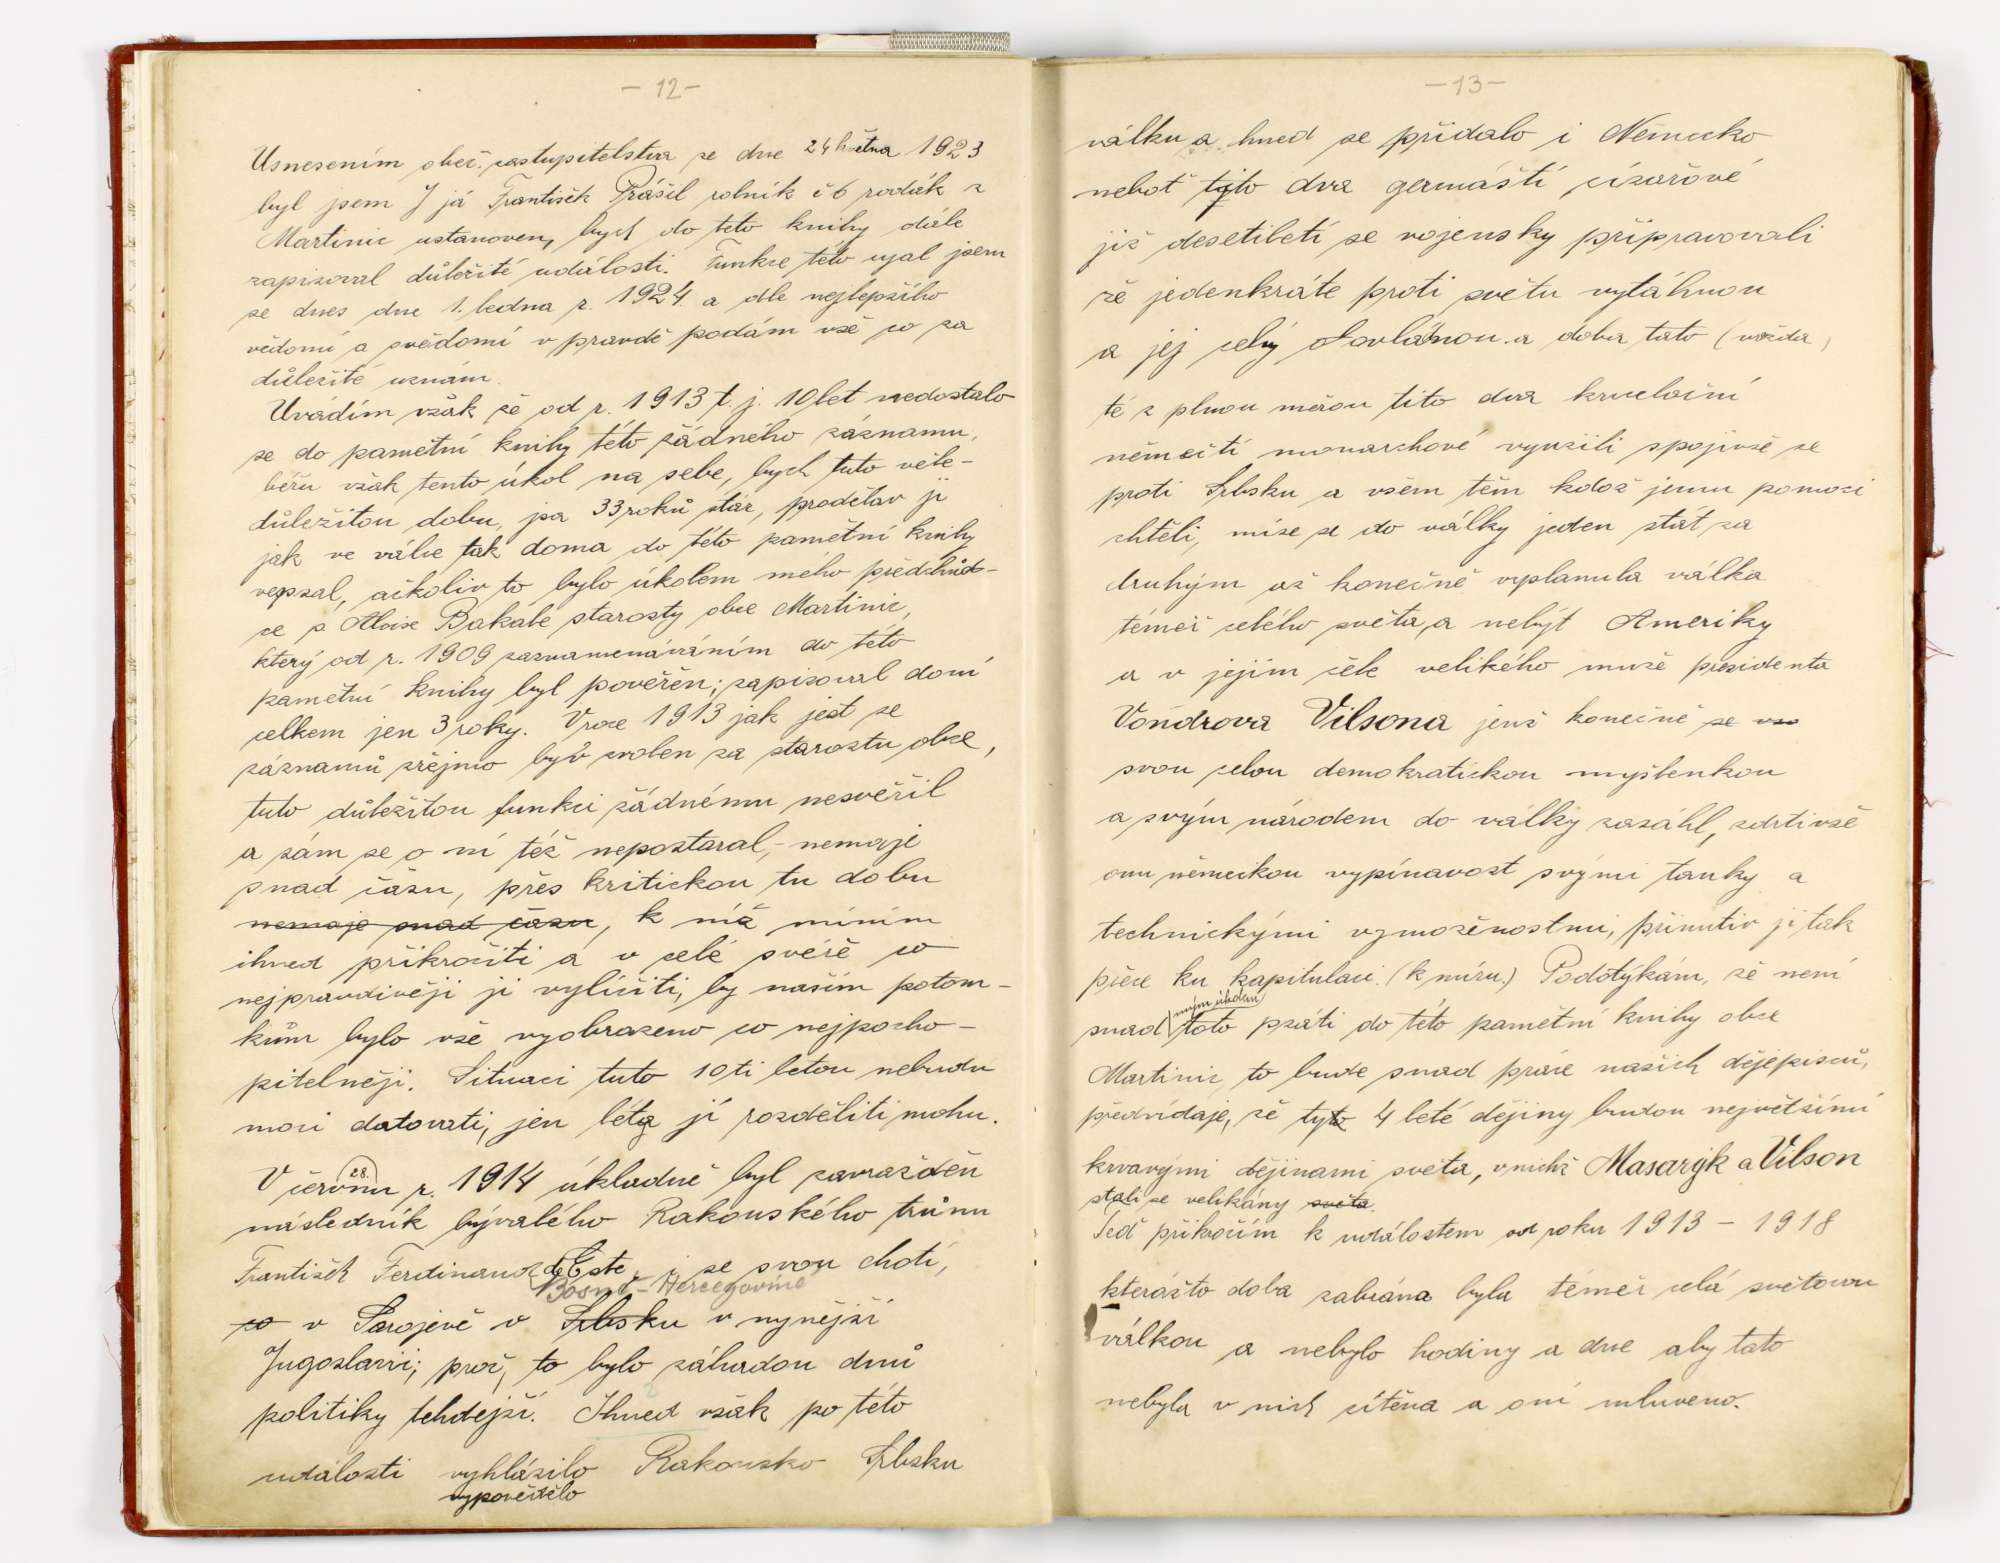 – 12 –
Usnesením obec. zastupitelstva ze dne 24 května 1923
byl jsem J já František Prášil rolník č 6 rodák z
Martinic ustanoven, bych do této knihy dále
zapisoval důležité události. Funkce této ujal jsem
se dnes dne 1. ledna r. 1924 a dle nejlepšího
vědomí a svědomí v pravdě podám vše co za
důležité uznám.
Uvádím však že od r. 1913 t. j. 10 let nedostalo
se do pamětní knihy této žádného záznamu,
béřu však tento úkol na sebe, bych tuto věle-
důležitou dobu, jsa 33 roků stár, prodělav ji
jak ve válce tak doma do této pamětní knihy
vepsal, ačkoliv to bylo úkolem mého předchůd-
ce p Aloise Bakale starosty obce Martinic,
který od r. 1909 zaznamenáváním do této
pamětní knihy byl pověřen; zapisoval doní
celkem jen 3 roky. Vroce 1913 jak jest ze
záznamů zřejmo byv zvolen za starostu obce,
tuto důležitou funkci žádnému nesvěřil
a sám se o ní též nepostaral, – nemaje
snad času, přes kritickou tu dobu
nemaje snad času, k níž míním
ihned přikročiti a v celé svéšě co
nejpravdivěji ji vylíčiti, by našim potom-
kům bylo vše vyobrazeno co nejpocho-
pitelněji. Situaci tuto 10ti letou nebudu
moci datovati, jen léta jí rozděliti mohu.
V červnu 28. r. 1914 úkladně byl zavražděn
následník bývalého Rakouského trůnu
František Ferdinand d'Este, i se svou chotí,
Bosně – Hercegovině
co v Sarajevě v Srbsku v nynější
Jugoslavii; proč, to bylo záhadou dnů
politiky tehdejší. Ihned však po této
události vyhlásilo Rakousko Srbsku
vypovědělo
– 13 –
válku a hned se přidalo i Německo
neboť tito dva germáští císařové
již desetiletí se vojensky připravovali
že jedenkráte proti světu vytáhnou
a jej celý dovládnou. a doba tato (vražda)
té z plnou měrou tito dva krvelační
němečtí monarchové využili spojivše se
proti Srbsku a všem těm kdož jemu pomoci
chtěli, míse se do války jeden stát za
druhým až konečně vyplanula válka
téměř celého světa, a nebýt Ameriky
a v jejím čele velikého muže presidenta
Voňdrova Vilsona jenž konečně se vso
svou celou demokratickou myšlenkou
a svým národem do války zasáhl, zdrtivše
onu německou vypínavost svými tanky a
technickými vymoženostmi, přinutiv ji tak
přece ku kapitulaci. (k míru.) Podotýkám, že není
mým úkolem
snad toto psáti do této pamětní knihy obce
Martinic, to bude snad práce našich dějepisců,
předvídaje, že tyto 4 leté dějiny budou největšími
krvavými dějinami světa, vnichž Masarýk a Vilson
stali se velikány světa.
Teď přikročím k událostem od roku 1913 – 1918
kterážto doba zabrána byla téměř celá světovou
válkou a nebylo hodiny a dne aby tato
nebyla v nich cítěna a oní mluveno.